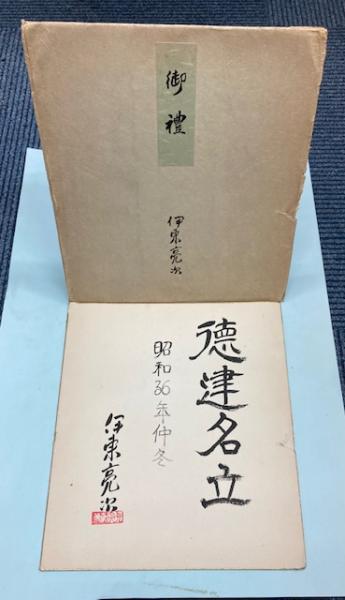 御禮
伊東亮次
德建名立
昭和36年仲冬
伊東亮次